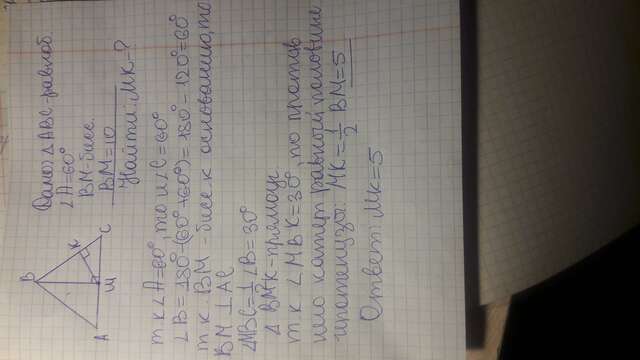 B
K
A
M
C
Дано: △ABC-равноб.
∠A=60°
BM-бисс.
BM=10
Найти: MK-?
т к ∠A=60°, то и ∠C=60°
∠B=180°-(60°+60°)=180°-120°=60°
т к BM - бисс. к основанию, то
BM ⊥ AC
∠MBC=1/2∠B=30°
△ BMK-прямоуг
т к ∠MBK=30°, то против
него катет равный половине
гипотенузы: MK=1/2 BM=5
Ответ: MK=5